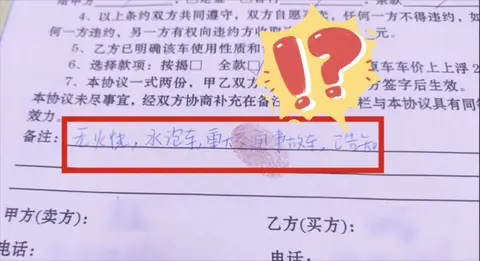 4、以上条约双方共同遵守，双方自愿
任何一方不得违约，如
何一方违约，另一方有权向违约方收取
元。
5、乙方已明确该车使用性质和
6、选择款项：按揭□ 全款
车车价上上浮2
7、本协议一式两份，甲乙双方
方签字后生效。
本协议未尽事宜，经双方协商补充在备注
栏与本协议具有同等
效力。
备注：无火烧，水泡车，重大
事故车，已告知
甲方(卖方)：
乙方(买方)：
电话：
电话：